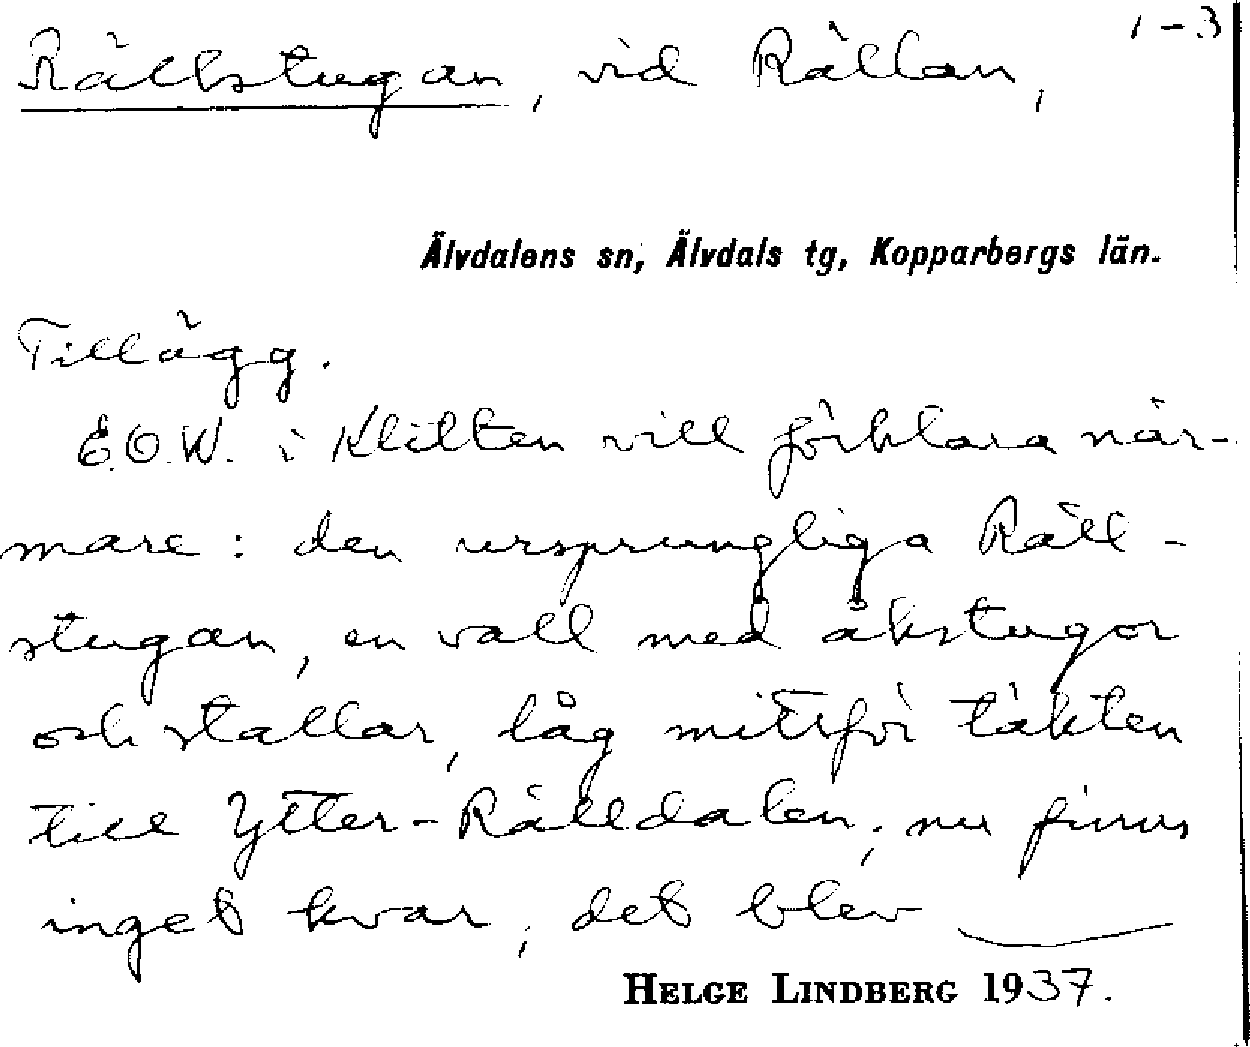 1-3
Rällstugan, vid Rällan,
Älvdalens sn, Älvdals tg, Kopparbergs län.
Tillägg.
E.O.W. i Klitten vill förklara när-
mare: den ursprungliga Räll-
stugan, en vall med åkstugor
och stallar, låg mittför täkten
till Ytter-Rälldalen; nu finns
inget kvar; det blev
HELGE LINDBERG 1937.